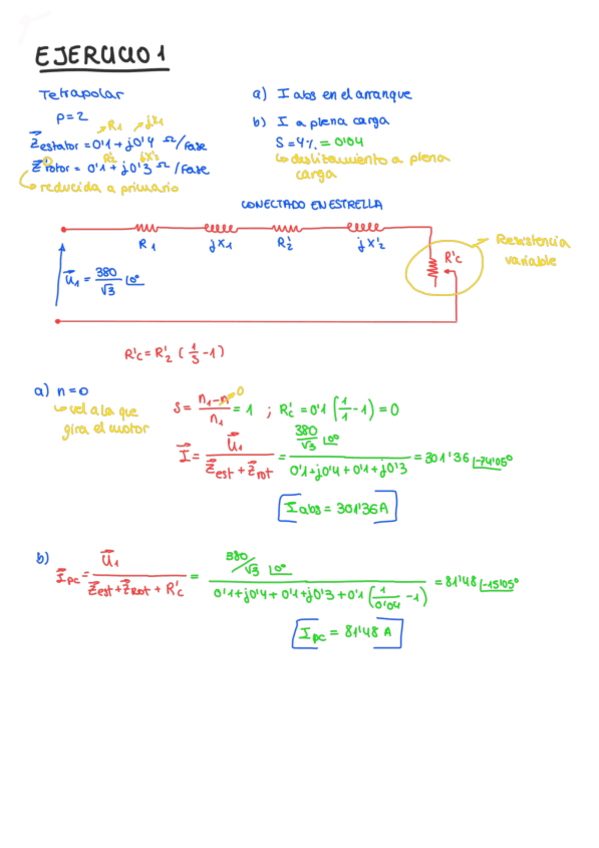 EJERCICIO 1
Tetrapolar
p=2
→R1 →jX1
Z̄estator = 0'1 + j0'4 Ω/Fase
R'2 jX'2
Z̄'rotor = 0'1 + j0'3 Ω/Fase
↳ reducida a primario
a) I abs en el arranque
b) I a plena carga
S=4% = 0'04
↳ deslizamiento a plena
carga
CONECTADO EN ESTRELLA
R1 jX1 R'2 jX'2 R'c
Resistencia
variable
Ū1 = 380/√3 |0°
R'c = R'2 (1/S -1)
a) n=0
↳ vel a la que
gira el motor
S = (n1-n→0)/n1 = 1 ; R'c = 0'1 (1/1 -1) = 0
Ī = Ū1/(Z̄est + Z̄rot) = (380/√3 |0°)/(0'1+j0'4+0'1+j0'3) = 301'36 |-74'05°
[Iabs = 301'36 A]
b) Īpc = Ū1/(Z̄est+Z̄rot + R'c) = (380/√3 |0°)/(0'1+j0'4+0'1+j0'3+0'1(1/0'04 -1)) = 81'48 |-15'05°
[Ipc = 81'48 A]